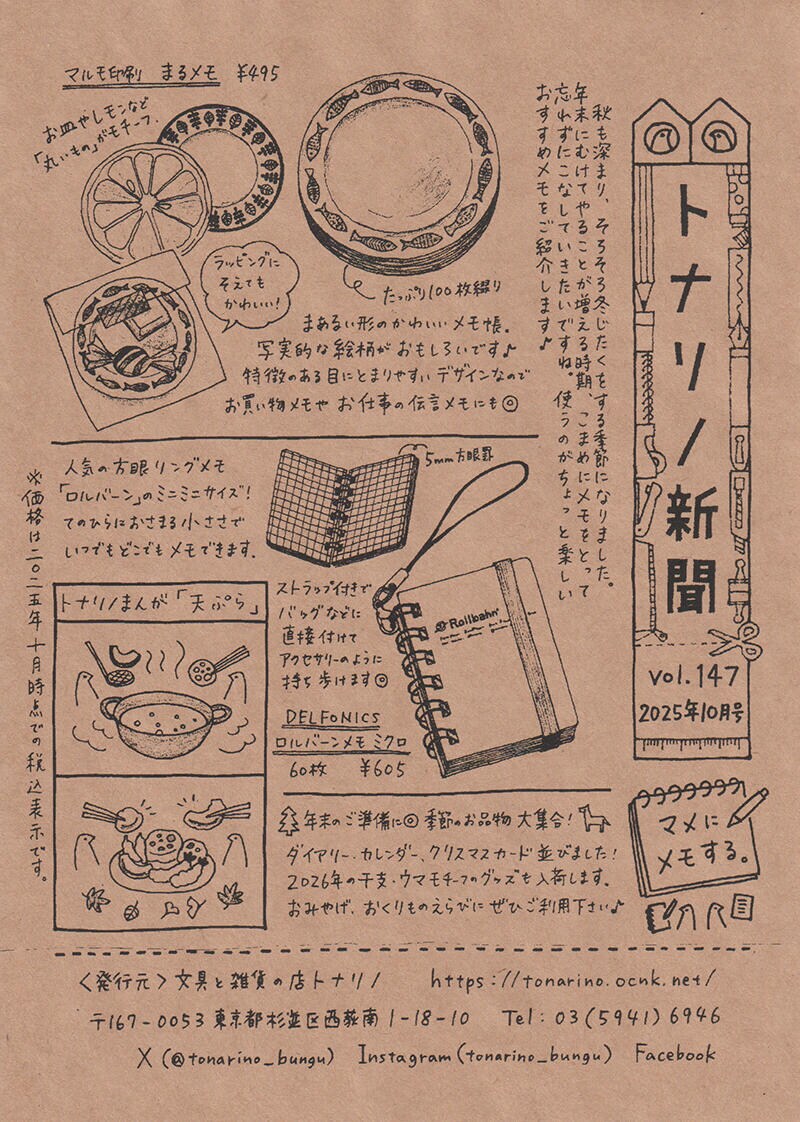 トナリノ新聞
vol.147
2025年10月号
マメに
メモする。
秋も深まり、そろそろ冬じたくをする季節になりました。
年末にむけてやることが増える時期、こまめにメモをとって
忘れずにこなしていきたいですね。使うのがちょっと楽しい
おすすめメモをご紹介します♪
マルモ印刷 まるメモ ¥495
お皿やレモンなど
「丸いもの」がモチーフ。
ラッピングに
そえても
かわいい!
たっぷり100枚綴り
まあるい形のかわいいメモ帳。
写実的な絵柄がおもしろいです♪
特徴のある目にとまりやすいデザインなので
お買い物メモや お仕事の伝言メモにも◎
人気の方眼リングメモ
「ロルバーン」のミニミニサイズ!
てのひらにおさまる小ささで
いつでもどこでもメモできます。
5mm方眼罫
Rollbahn
ストラップ付きで
バッグなどに
直接付けて
アクセサリーのように
持ち歩けます◎
DELFONICS
ロルバーンメモ ミクロ
60枚 ¥605
トナリノまんが「天ぷら」
※価格は二〇二五年十月時点での税込表示です。
年末のご準備に◎ 季節のお品物 大集合!
ダイアリー・カレンダー、クリスマスカード並びました!
2026年の干支・ウマモチーフのグッズも入荷します。
おみやげ、おくりものえらびに ぜひご利用下さい♪
<発行元> 文具と雑貨の店トナリノ https://tonarino.ocnk.net/
〒167-0053 東京都杉並区西荻南1-18-10 Tel: 03(5941)6946
X(@tonarino_bungu) Instagram(tonarino_bungu) Facebook